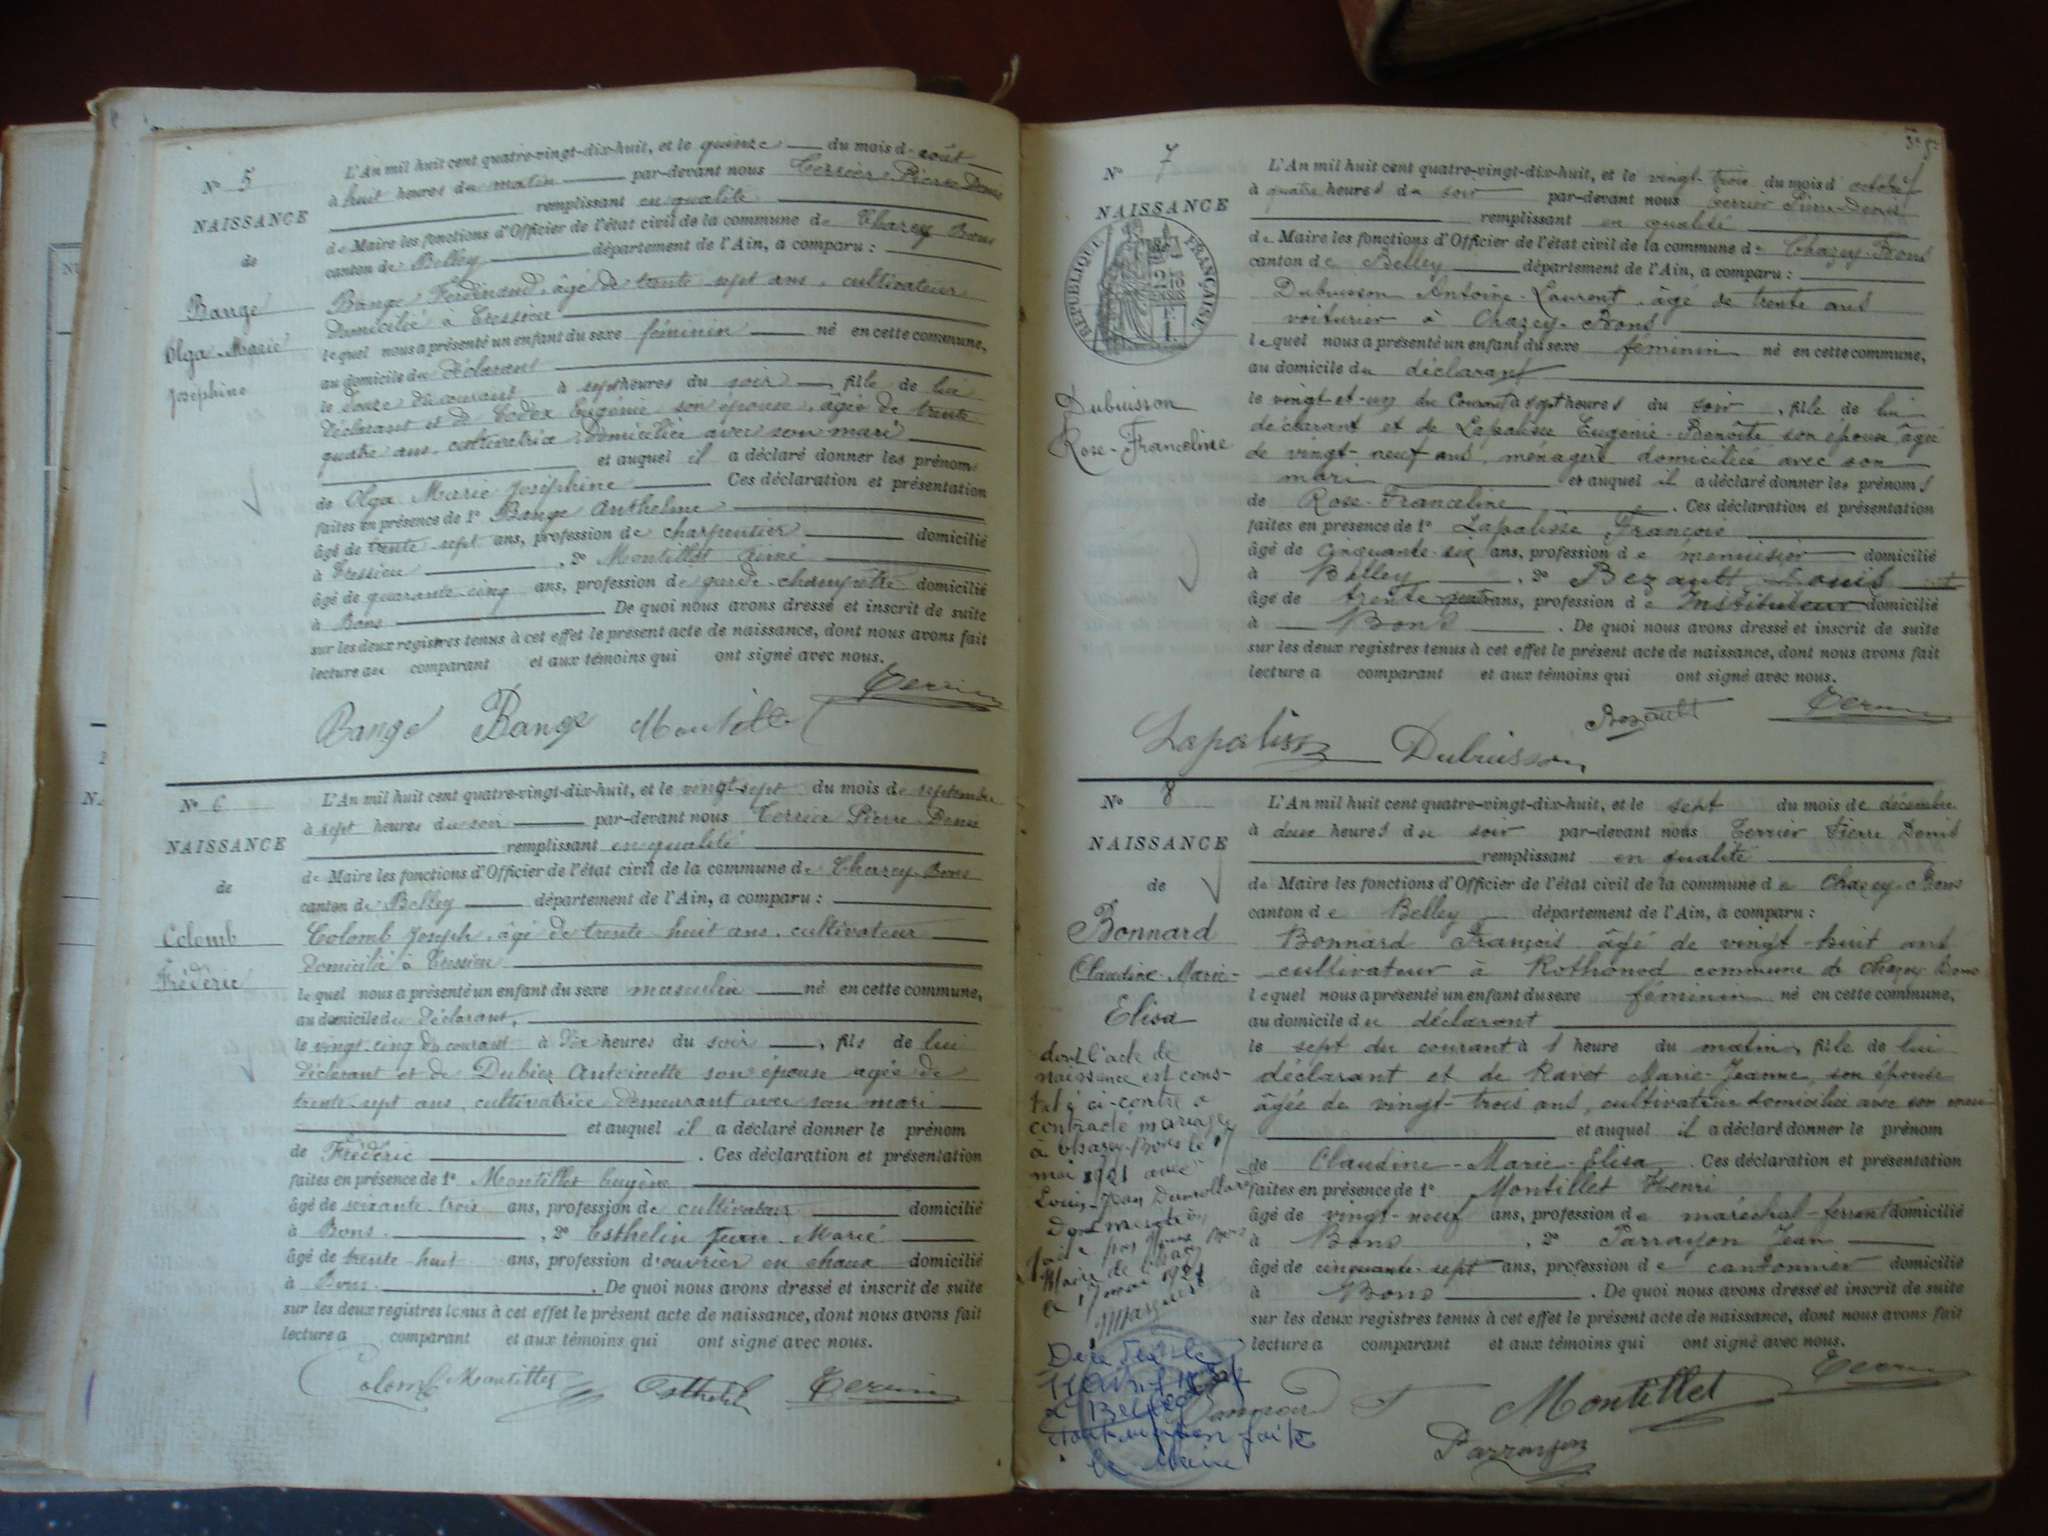 N° 5
NAISSANCE
de
Bange
Olga Marie
Joséphine
L'An mil huit cent quatre-vingt-dix-huit, et le quinze du mois d août
à huit heures du matin par-devant nous Terrier Pierre Denis
remplissant en qualité
de Maire les fonctions d'Officier de l'état civil de la commune de Chazey Bons
canton de Belley département de l'Ain, a comparu :
Bange Ferdinand, âgé de trente sept ans, cultivateur
domicilié à Cressieu
lequel nous a présenté un enfant du sexe féminin né en cette commune,
au domicile du déclarant
le douze du courant à sept heures du soir, fille de lui
déclarant et de Eugénie son épouse, âgée de trente
quatre ans, cultivatrice, domiciliée avec son mari
et auquel il a déclaré donner les prénoms
de Olga Marie Joséphine Ces déclaration et présentation
faites en présence de 1° Bange Anthelme
âgé de trente-sept ans, profession de charpentier domicilié
à Cressieu, 2° Montillet Aimé
âgé de quarante-cinq ans, profession de garde-champêtre domicilié
à Bons De quoi nous avons dressé et inscrit de suite
sur les deux registres tenus à cet effet le présent acte de naissance, dont nous avons fait
lecture au comparant et aux témoins qui ont signé avec nous.
Terrier
Bange Bange Montillet
N° 6
NAISSANCE
de
Colomb
Frédéric
L'An mil huit cent quatre-vingt-dix-huit, et le vingt-sept du mois de septembre
à sept heures du soir par-devant nous Terrier Pierre Denis
remplissant en qualité
de Maire les fonctions d'Officier de l'état civil de la commune de Chazey-Bons
canton de Belley département de l'Ain, a comparu :
Colomb Joseph, âgé de trente huit ans, cultivateur
domicilié à Cressieu
lequel nous a présenté un enfant du sexe masculin né en cette commune,
au domicile du déclarant,
le vingt-cinq du courant à dix heures du soir, fils de lui
déclarant et de Dubiez Antoinette son épouse agée de
trente-sept ans, cultivatrice demeurant avec son mari
et auquel il a déclaré donner le prénom
de Frédéric. Ces déclaration et présentation
faites en présence de 1° Montillet Eugène
âgé de soixante-trois ans, profession de cultivateur domicilié
à Bons, 2° Esthelin Jean-Marie
âgé de trente huit ans, profession d'ouvrier en chaux domicilié
à Bons. De quoi nous avons dressé et inscrit de suite
sur les deux registres tenus à cet effet le présent acte de naissance, dont nous avons fait
lecture a comparant et aux témoins qui ont signé avec nous.
Colomb Montillet Esthelin Terrier
N° 7
NAISSANCE
RÉPUBLIQUE FRANÇAISE
Dubuisson
Rose-Franceline
L'An mil huit cent quatre-vingt-dix-huit, et le vingt-trois du mois d octobre
à quatre heures du soir par-devant nous Terrier Pierre-Denis
remplissant en qualité
de Maire les fonctions d'Officier de l'état civil de la commune de Chazey-Bons
canton de Belley département de l'Ain, a comparu :
Dubuisson Antoine-Laurent, âgé de trente ans
voiturier à Chazey-Bons
lequel nous a présenté un enfant du sexe féminin né en cette commune,
au domicile du déclarant
le vingt-et-un du Courant à sept heures du soir, fille de lui
déclarant et de Lapalisse Eugénie-Benoîte son épouse âgée
de vingt-neuf ans, ménagère domiciliée avec son
mari et auquel il a déclaré donner les prénoms
de Rose-Franceline. Ces déclaration et présentation
faites en présence de 1° Lapalisse François
âgé de cinquante-six ans, profession de menuisier domicilié
à Belley, 2° Bezault Louis
âgé de trente-quatre ans, profession d Instituteur domicilié
à Bons. De quoi nous avons dressé et inscrit de suite
sur les deux registres tenus à cet effet le présent acte de naissance, dont nous avons fait
lecture a comparant et aux témoins qui ont signé avec nous.
Bezault Terrier
Lapalisse Dubuisson
N° 8
NAISSANCE
de
Bonnard
Claudine Marie-
Elisa
dont l'acte de
naissance est cons-
taté ci-contre a
contracté mariage
à Chazey-Bons le 17
mai 1921 avec
Louis-Jean
Dont mention
faite par nous
Maire de Chazey
le 17 mai 1921
Décédée le
à Belley
dont mention faite
le Maire
L'An mil huit cent quatre-vingt-dix-huit, et le sept du mois de décembre
à deux heures du soir par-devant nous Terrier Pierre Denis
remplissant en qualité
de Maire les fonctions d'Officier de l'état civil de la commune de Chazey-Bons
canton de Belley département de l'Ain, a comparu :
Bonnard François âgé de vingt-huit ans
cultivateur à Rothonod commune de Chazey Bons
lequel nous a présenté un enfant du sexe féminin né en cette commune,
au domicile du déclarant
le sept du courant à 1 heure du matin, fille de lui
déclarant et de Ravet Marie-Jeanne, son épouse
âgée de vingt-trois ans, cultivateur domiciliée avec son mari
et auquel il a déclaré donner le prénom
de Claudine-Marie-Elisa. Ces déclaration et présentation
faites en présence de 1° Montillet Henri
âgé de vingt-neuf ans, profession de maréchal-ferrant domicilié
à Bons, 2° Parrayon Jean
âgé de cinquante-sept ans, profession de cantonnier domicilié
à Bons. De quoi nous avons dressé et inscrit de suite
sur les deux registres tenus à cet effet le présent acte de naissance, dont nous avons fait
lecture a comparant et aux témoins qui ont signé avec nous.
Montillet Terrier
Parrayon